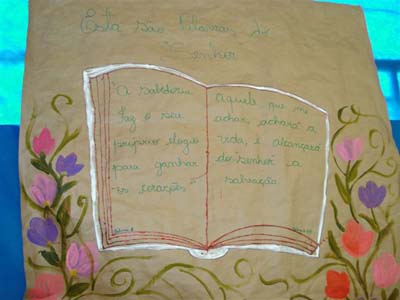 Esta são Palavras do
Senhor
"A sabedoria
faz o seu
próprio elogio
para ganhar
os corações"
aquele que me
achar, achará a
vida, e alcançará
do "Senhor" a
salvação